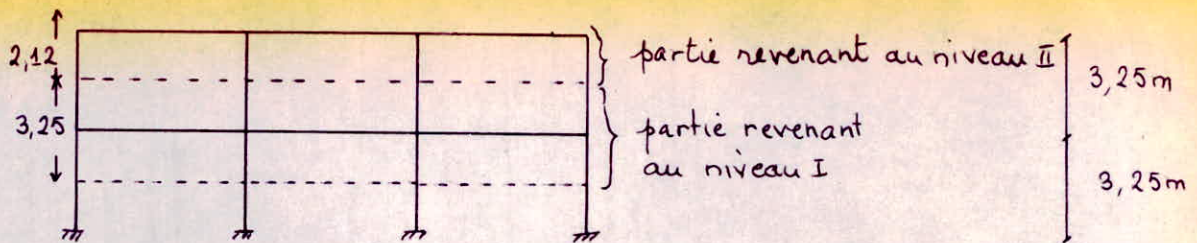 2,12
3,25
partie revenant au niveau II
partie revenant
au niveau I
3,25m
3,25m